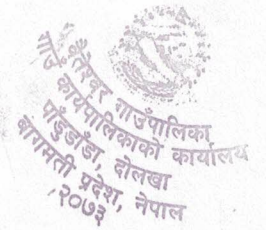 वैतेश्वर गाउँपालिका
गाउँ कार्यपालिकाको कार्यालय
पाँडुडाँडा, दोलखा
बागमती प्रदेश, नेपाल
२०७३